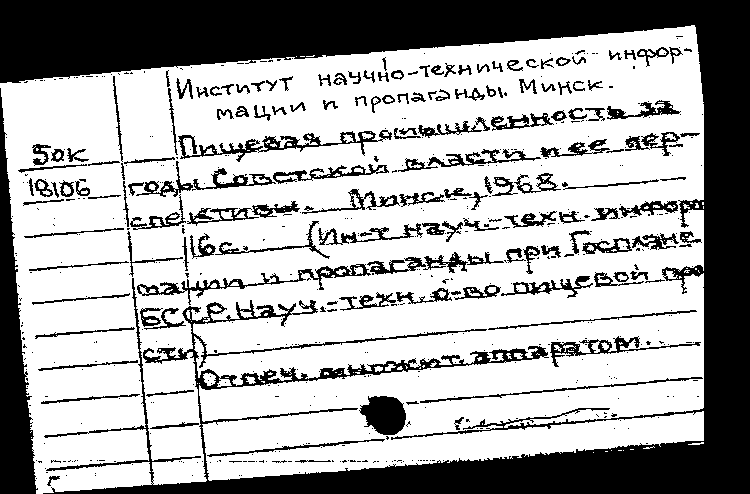 Институт научно-технической инфор-
мации и пропаганды. Минск.
50к Пищевая промышленность за
18106 годы Советской власти и ее пер-
спективы. Минск, 1968.
116с. (Ин-т науч.-техн. информа
мации и пропаганды при Госплане
БССР. Науч.-техн. о-во пищевой про
сти).
Отпеч. множит. аппаратом.